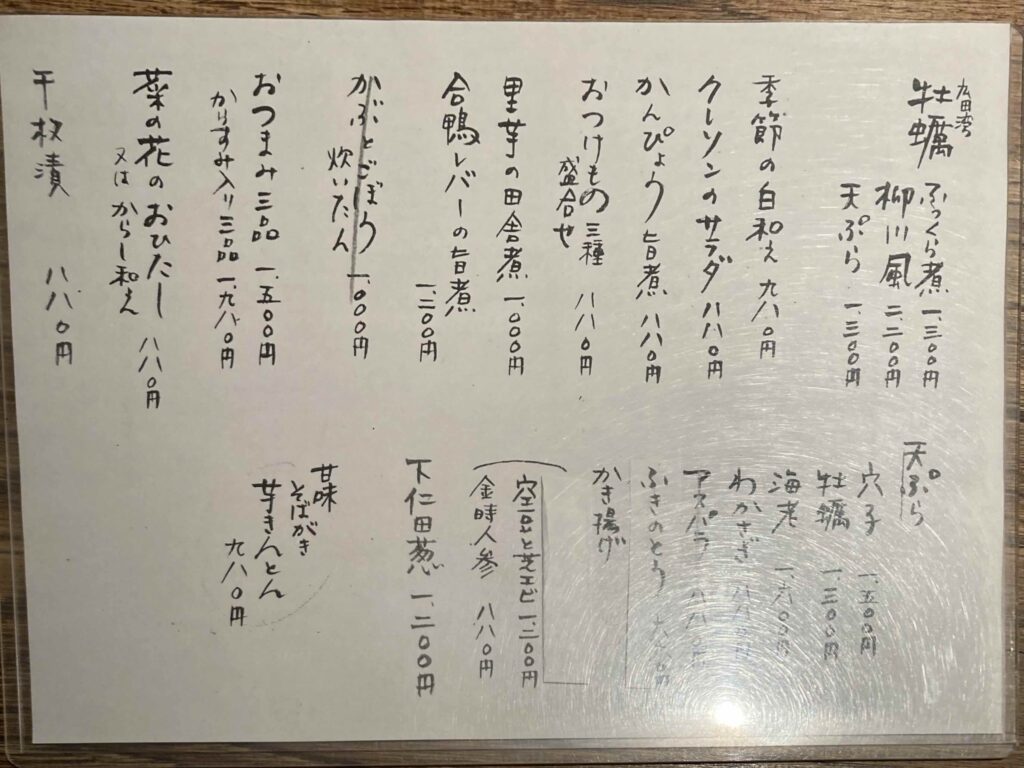 広田湾
牡蠣
ふっくら煮 一、三〇〇円
柳川風 二、二〇〇円
天ぷら 一、三〇〇円
季節の白和え 九八〇円
クレソンのサラダ 八八〇円
かんぴょう旨煮 八八〇円
おつけもの三種
盛合せ 八八〇円
里芋の田舎煮 一、〇〇〇円
合鴨レバーの旨煮
一、二〇〇円
かぶとごぼう
炊いたん 一、〇〇〇円
おつまみ三品 一、五〇〇円
からすみ入り三品 一、九八〇円
菜の花のおひたし 八八〇円
又はからし和え
千枚漬 八八〇円
天ぷら
穴子 一、五〇〇円
牡蠣 一、三〇〇円
海老
わかさぎ 八八〇円
アスパラ 八八〇円
ふきのとう
かき揚げ
空豆と芝エビ 一、二〇〇円
金時人参 八八〇円
下仁田葱 一、二〇〇円
甘味
そばがき
芋きんとん
九八〇円